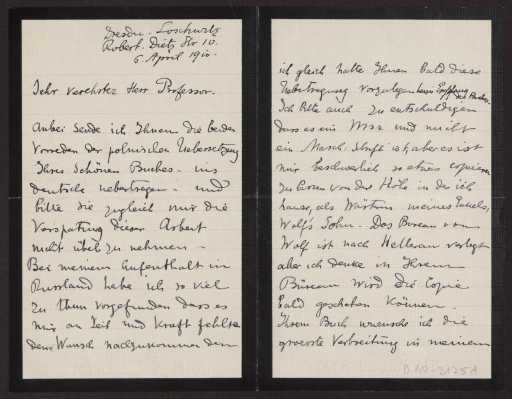 Dresden. Loschwitz
Robert. Dietz Str 10.
6 April 1910.
Sehr verehrter Herr Professor.
Anbei sende ich Ihnen die beiden
Vorreden der polnischen Uebersetzung
Ihres Schönen Buches - ins
deutsche uebertragen - und
bitte Sie zugleich mir die
Verspätung dieser Arbeit
nicht übel zu nehmen -
Bei meinem Aufenthalt in
Russland habe ich so viel
zu thun vorgefunden dass es
mir an Zeit und Kraft fehlte
dem Wunsch nachzukommen den
ich gleich hatte Ihnen bald diese
Uebertragung vorzulegen beim Empfang des Buches.
Ich bitte auch zu entschuldigen
dass es ein Mss und nicht
ein Masch. ist aber es ist
mir beschwerlich so etwas copieren
zu lassen von der Höhe in der ich
hause, als Wärterin meines Enkels,
Wolf's Sohn. Das Bureau von
Wolf ist nach Hellerau verlegt
aber ich denke in Ihrem
Bureau wird die Copie
bald geschehen können.
Ihrem Buch wuensche ich die
groesste Verbreitung in meinem